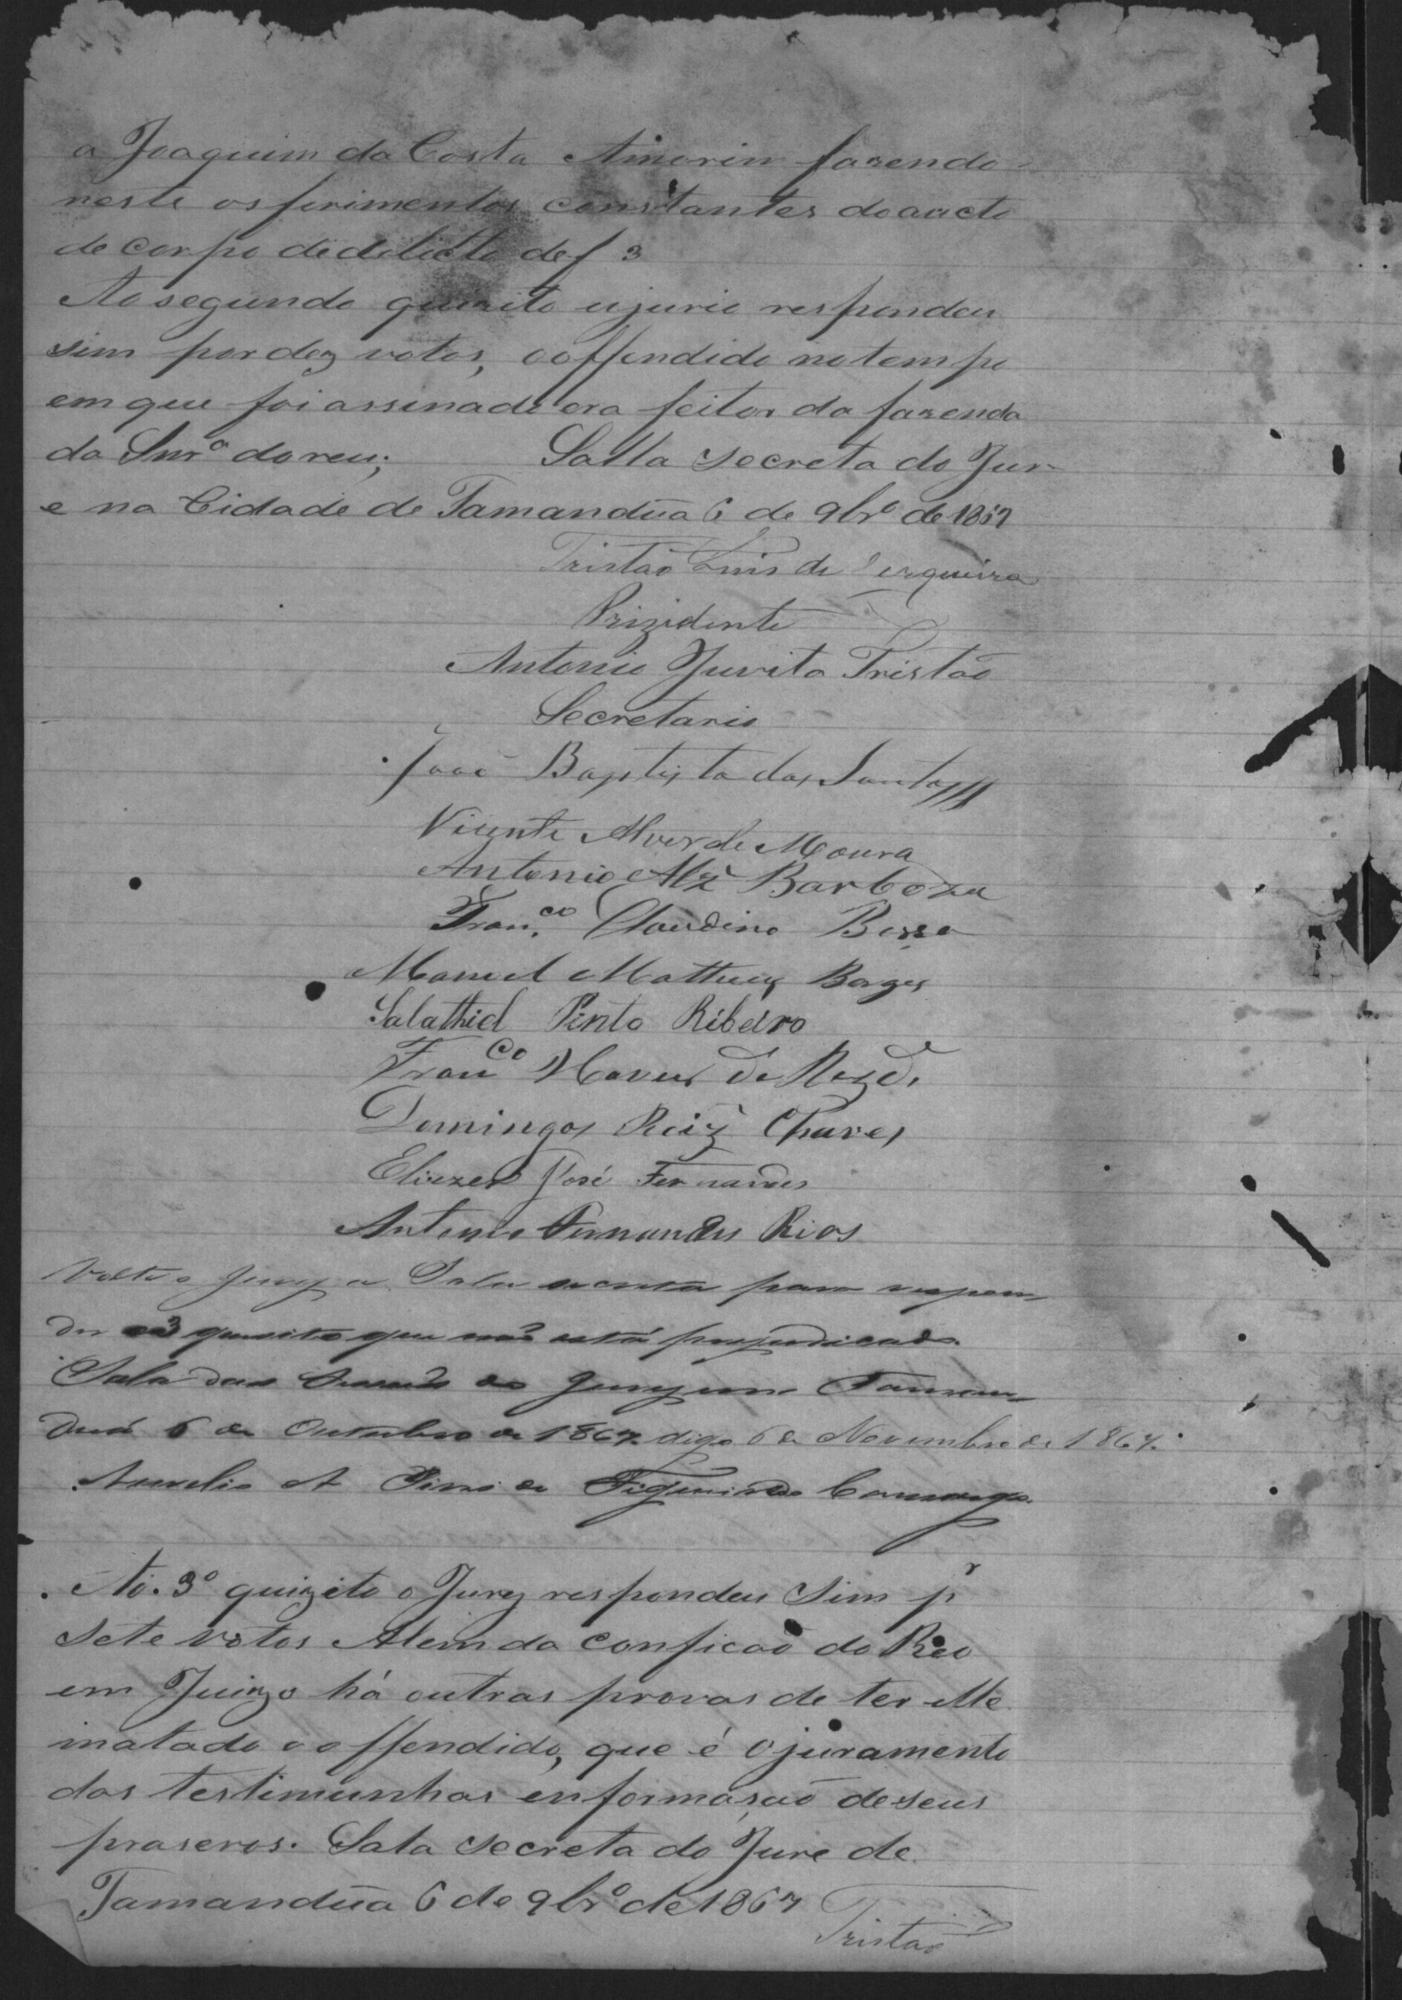 a Joaquim da Costa Amorin fasendo
neste os ferimentos constantes do aucto
de corpo de delicto de f 3
Ao segundo quizito ojurio respondeu
sim por dez votos, o offendido no tempo
em que foi assinado era feitor da fazenda
da Snrª do reu; Salla secreta do Jur-
e na Cidade de Tamandúa 6 de 9brº de 1867
Tristão Luis de Serqueira
Prizidente
Antonio Juvita Tristão
Secretario
João Baptista dos Santos
Vicente Alves de Moura
Antonio Alz Barboza
Fran.co Claudino Bessa
Manoel Matheus Borges
Salathiel Pinto Ribeiro
Franco de
Domingos Roiz Chaves
Eliezer José Fernandes
Antonio Fernandes Rios
Volte o Jury a Sala secreta para respon-
der o 3 quesito que não está prejudicado.
Sala das Sessões do Jury em Taman-
duá 6 de Outubro de 1867 digo 6 de Novembro de 1867.
Aurelio A Pires de Figueiredo Camargo
Ao. 3º quizito o Jury respondeu Sim pr
Sete votos Alem da conficaõ do Reo
em Juizo há outras provas de ter elle
matado o offendido, que é ojuramento
das testimunhas enformaçaõ de seus
praseros. Sala secreta do Jure de
Tamandúa 6 de 9brº de 1867
Tristão